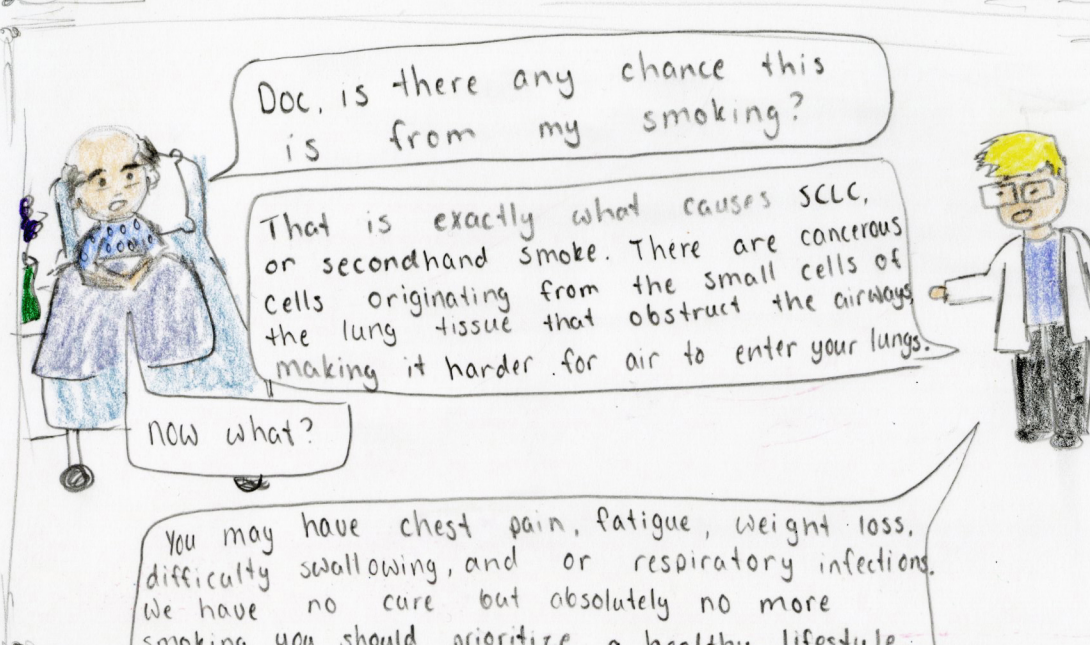 Doc, is there any chance this
is from my smoking?
That is exactly what causes SCLC,
or secondhand smoke. There are cancerous
cells originating from the small cells of
the lung tissue that obstruct the airways,
making it harder for air to enter your lungs.
now what?
You may have chest pain, fatigue, weight loss,
difficulty swallowing, and or respiratory infections.
We have no cure but absolutely no more
smoking you should prioritize a healthy lifestyle